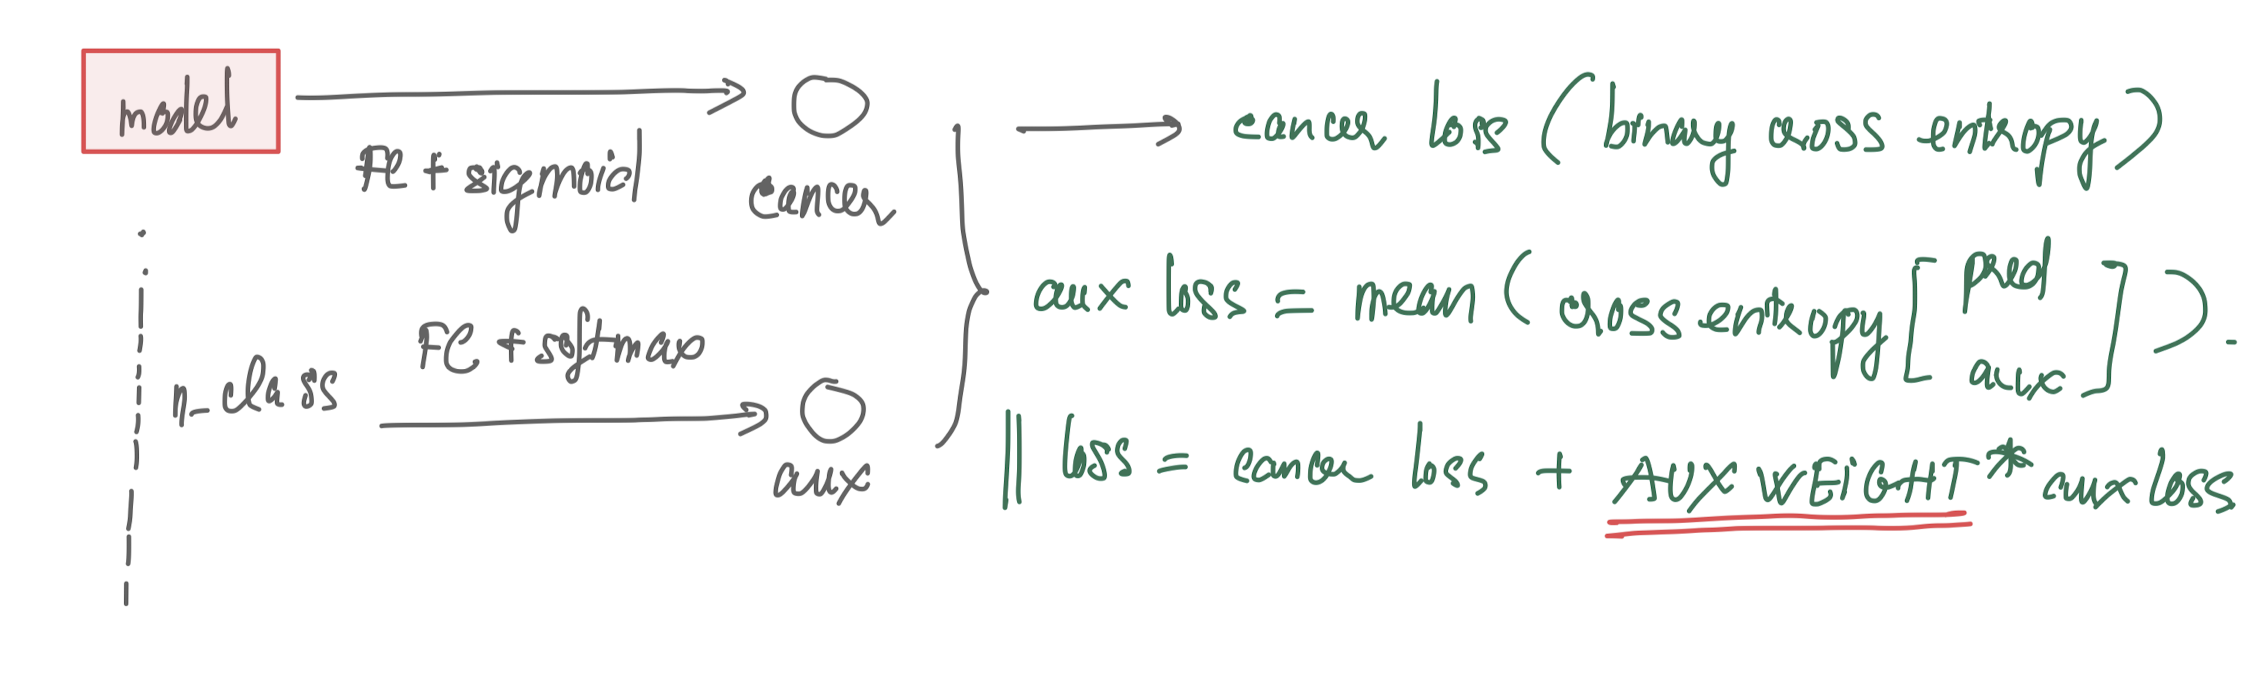 model
FC + sigmoid
cancer
n_class
FC + softmax
aux
cancer loss (binary cross entropy)
aux loss = mean (cross entropy [pred aux]).
loss = cancer loss + AUX WEIGHT * aux loss